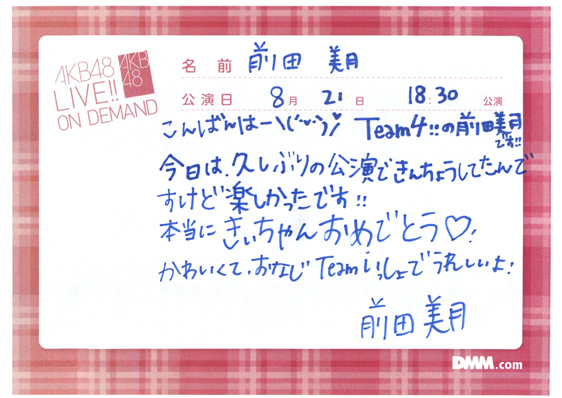 AKB48
LIVE!!
ON DEMAND
AKB
48
名前 前田 美月
公演日 8月 21日 18:30 公演
こんばんはー\(˙ᵕ˙)/ Team4!!の前田美月
です!!
今日は、久しぶりの公演できんちょうしてたんで
すけど楽しかったです!!
本当に きぃちゃん おめでとう♡!
かわいくて、おなじ Team いっしょで うれしいよ!
前田 美月
DMM.com